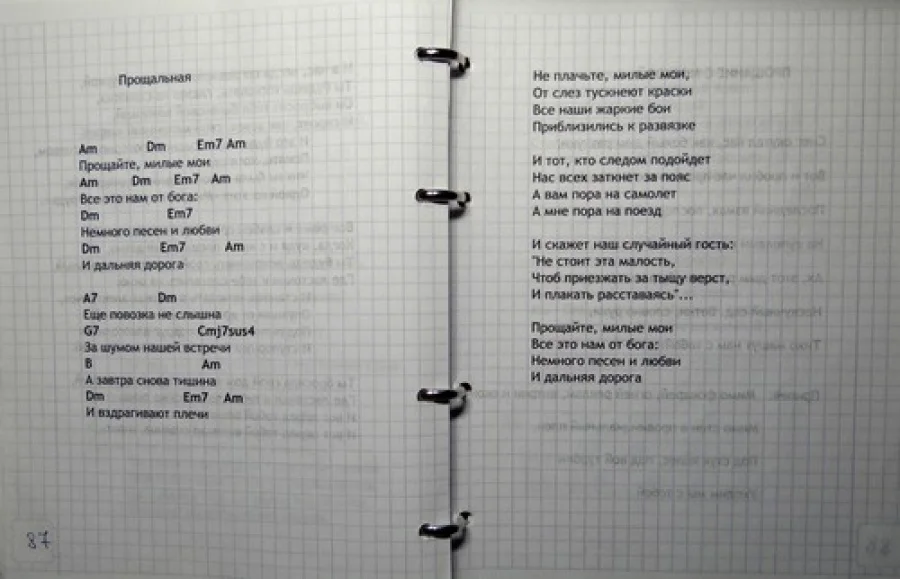 Прощальная
Am Dm Em7 Am
Прощайте, милые мои
Am Dm Em7 Am
Все это нам от бога:
Dm Em7
Немного песен и любви
Dm Em7 Am
И дальняя дорога
A7 Dm
Еще повозка не слышна
G7 Cmj7sus4
За шумом нашей встречи
B Am
А завтра снова тишина
Dm Em7 Am
И вздрагивают плечи
87
Не плачьте, милые мои,
От слез тускнеют краски
Все наши жаркие бои
Приблизились к развязке
И тот, кто следом подойдет
Нас всех заткнет за пояс
А вам пора на самолет
А мне пора на поезд
И скажет наш случайный гость:
"Не стоит эта малость,
Чтоб приезжать за тыщу верст,
И плакать расставаясь"...
Прощайте, милые мои
Все это нам от бога:
Немного песен и любви
И дальняя дорога